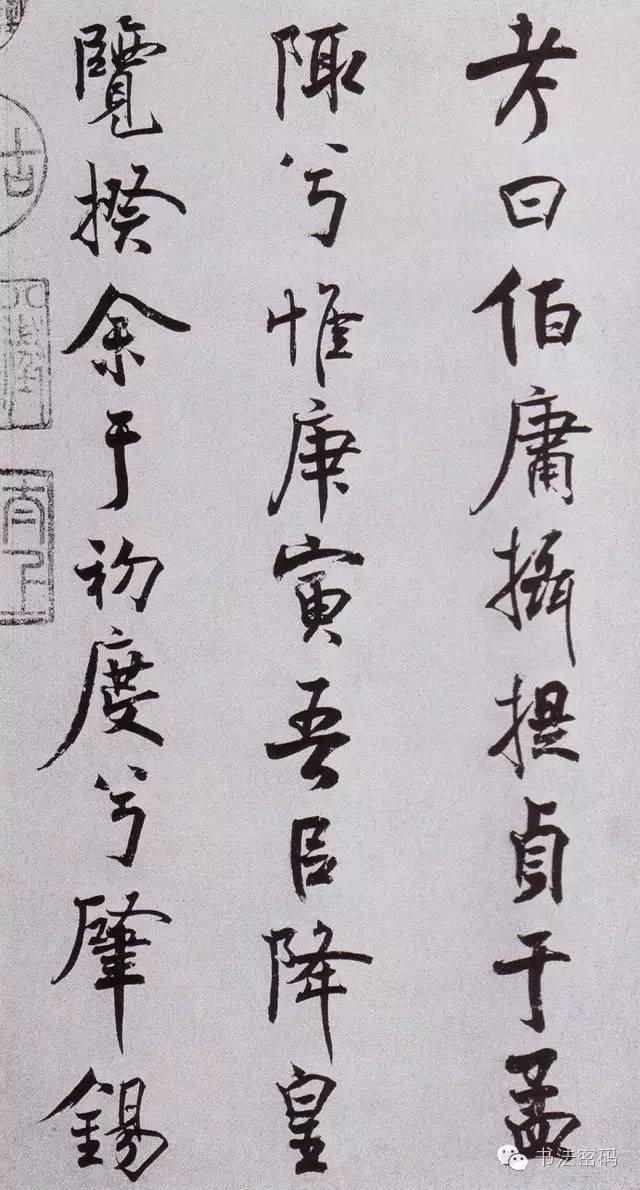 考曰伯庸攝提貞于孟
陬兮惟庚寅吾㠯降皇
覽揆余于初度兮肇錫
古
书法密码